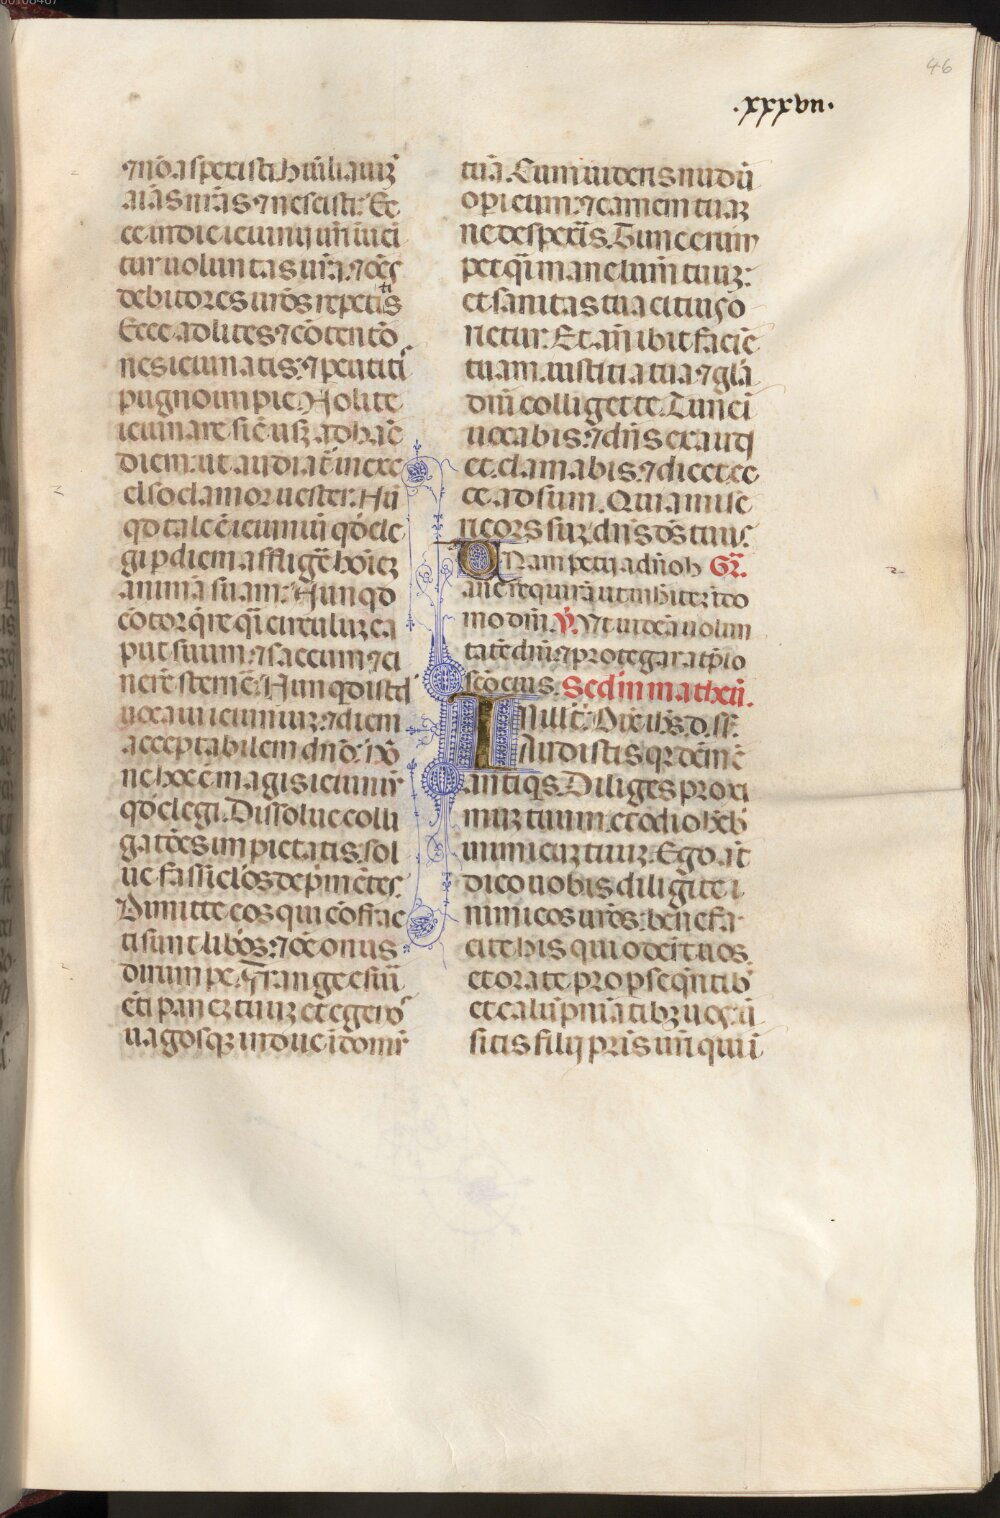 46
.xxxvii.
⁊ nō aspexisti. humiliauimꝰ
aīas nr̄as ⁊ nescisti. Ec
ce in die ieiunij ur̄i iueni
tur uoluntas ur̄a. ⁊ oēs
debitores ur̄os repetitis
Ecce ad lites ⁊ cōtentio
nes ieiunatis. ⁊ percutitis
pugno impie. Nolite
ieiunare sic̄ usqꝫ ad hāc
diem. ut audiat̄ in exce
elso clamor uester. Nū
qd̄ tale ē ieiuniū qd̄ ele
gi p diem affligē hoīez
animā suam. Nunqd
cōtorqr̄e qi circulū ca
put suum. ⁊ saccum ⁊ ci
nerē sternē. Nunqd istd
uocaui ieiuniū. ⁊ diem
acceptabilem dn̄o. Nō
ne hoc ē magis ieiuniū
qd̄ elegi. Dissolue colli
gatōes impietatis. sol
ue fasciclōs depm̄ētes.
Dimitte eos qui cōfrac
ti sunt libōs. ⁊ oē onus
dirrumpe. Frange esuri
ēti panez tuuz et egenos
uagosqꝫ induc i domū
tuā. Cum uideris nudū
opi eum. ⁊ carnem tuaz
ne despex̄is. Tunc erum
pet qi mane lumē tuuz.
et sanitas tua citius o
rietur. Et an̄ ibit faciē
tuam iustitia tua ⁊ glā
dn̄i colliget te. Tunc i
uocabis. ⁊ dn̄s exaudi
et. clamabis. ⁊ dicet. ec
ce adsum. Quia mise
ricors suꝫ dn̄s ds̄ tuus.
Unam petij a dn̄o h Gr̄.
anc requirā ut inhitez i do
mo dn̄i. V̄. Ut uideā uolun
tatē dn̄i ⁊ protegar a tp̄lo
scō eius. Secd̄m matheū.
In ill̄ t̄. Dix̄ ih̄s. d. sꝭ.
Audistis qꝛ dcm̄ ē
antiqs. Diliges proxi
muꝫ tuum. et odio hēb
inimicuꝫ tuuꝫ. Ego at̄
dico uobis diligite i
nimicos ur̄os. benefa
cite his qui oder̄t uos.
et orate pro psequn̄tib
et calūpniātibꝫ uos. ū
sitis filij pr̄is ur̄i qui i